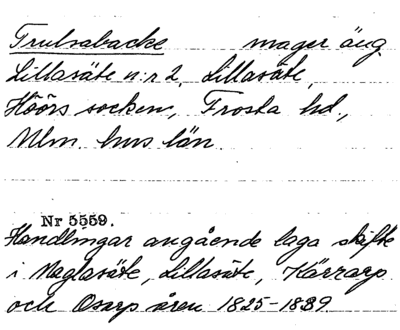 Trulsabacke mager äng
Lillasäte n:r 2, Lillasäte,
Höörs socken, Frosta hd,
Mlm. hus län.
Nr 5559.
Handlingar angående laga skifte
i Maglasäte, Lillasäte, Kärrarp
och Osarp åren 1825-1839.